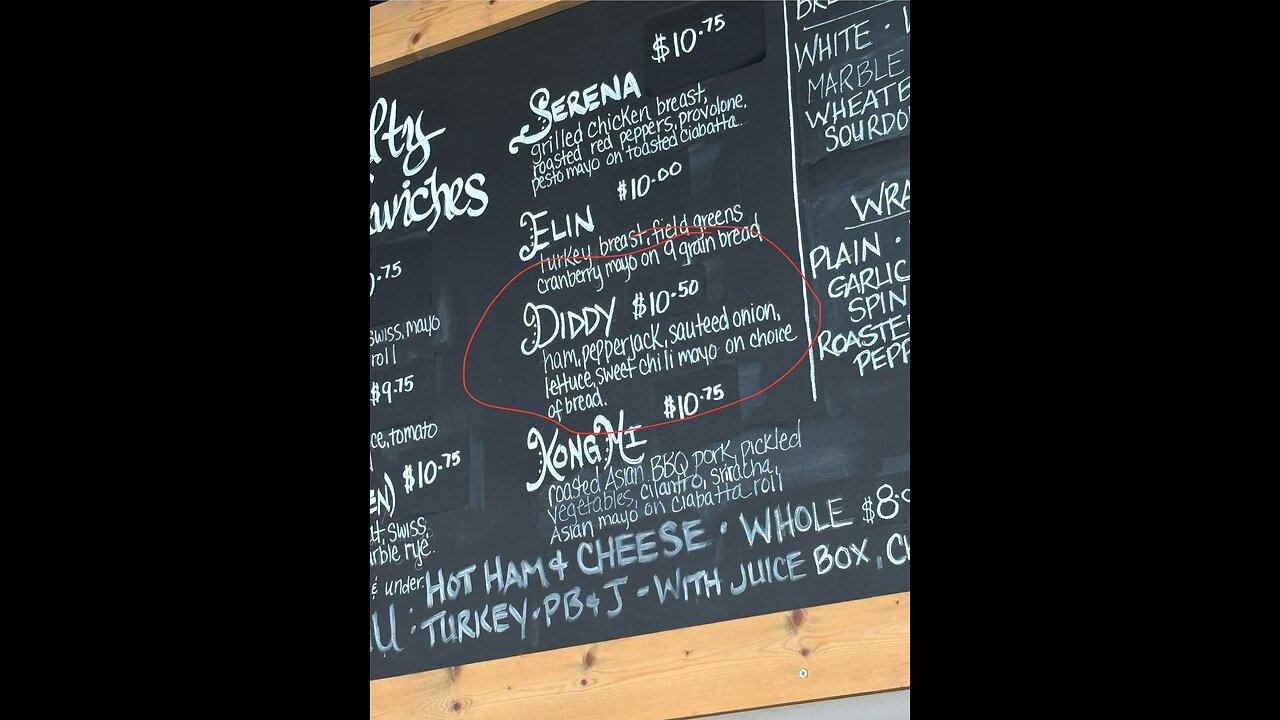 lty
wiches
.75
swiss, mayo
roll
$9.75
ce, tomato
EN) $10.75
t, swiss,
rble rye.
& under.
$10.75
SERENA
grilled chicken breast,
roasted red peppers, provolone,
pesto mayo on toasted ciabatta.
$10.00
ELIN
turkey breast, field greens
cranberry mayo on 9 grain bread
DIDDY $10.50
ham, pepperjack, sauteed onion,
lettuce, sweet chili mayo on choice
of bread.
$10.75
KONG MI
roasted Asian BBQ pork, pickled
vegetables, cilantro, sriracha,
Asian mayo on ciabatta roll
HOT HAM & CHEESE · WHOLE $8.
U: TURKEY · PB & J - WITH JUICE BOX, C
WHITE ·
MARBLE
WHEATE
SOURDO
WRA
PLAIN ·
GARLIC
SPIN
ROASTE
PEPP